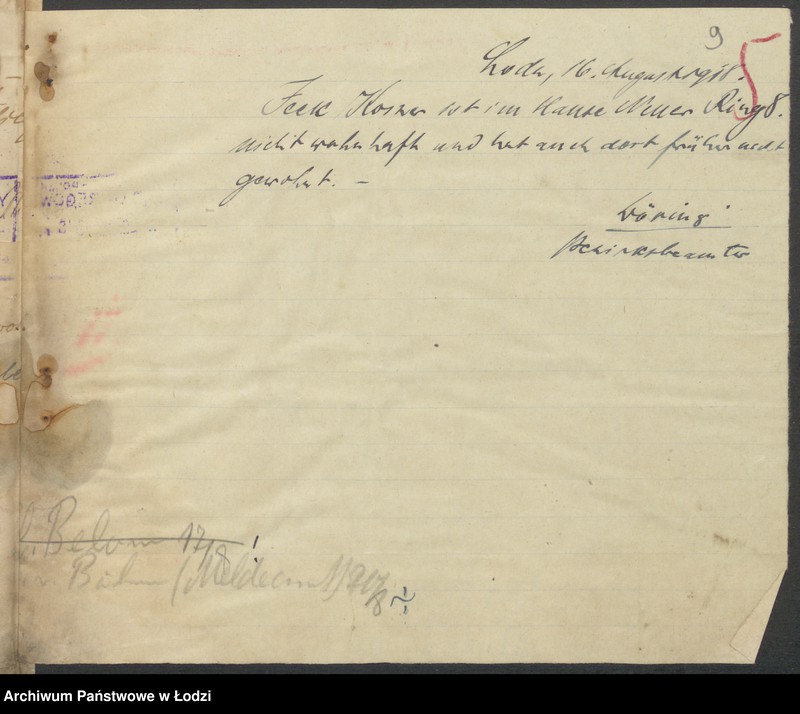 9
5
Lodz, 16. August 1918.
Icek Koszer ist im Hause Neuer Ring 8.
nicht wohnhaft und hat auch dort früher nicht
gewohnt. –
Döring
Bezirksbeamter
17/8
(Meldeamt) 20/8
Archiwum Państwowe w Łodzi